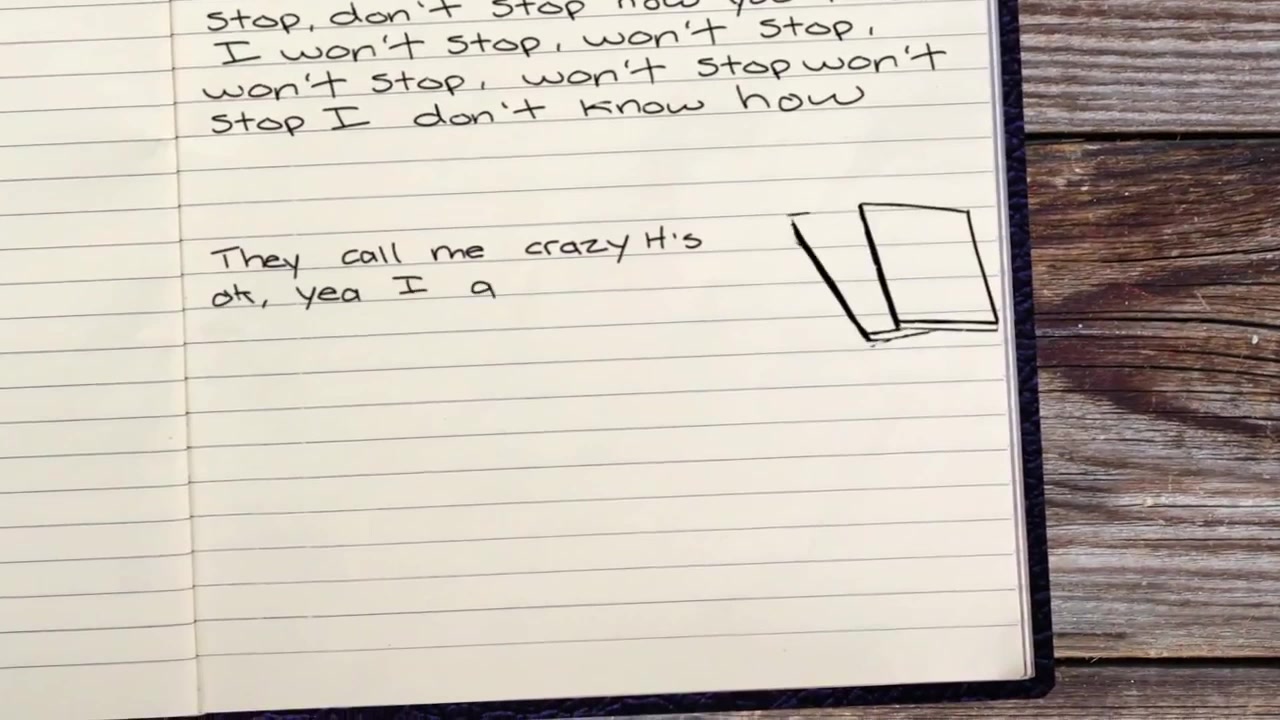 stop, don't stop now you
I won't stop, won't stop,
won't stop, won't stop won't
stop I don't know how
They call me crazy It's
ok, yea I a